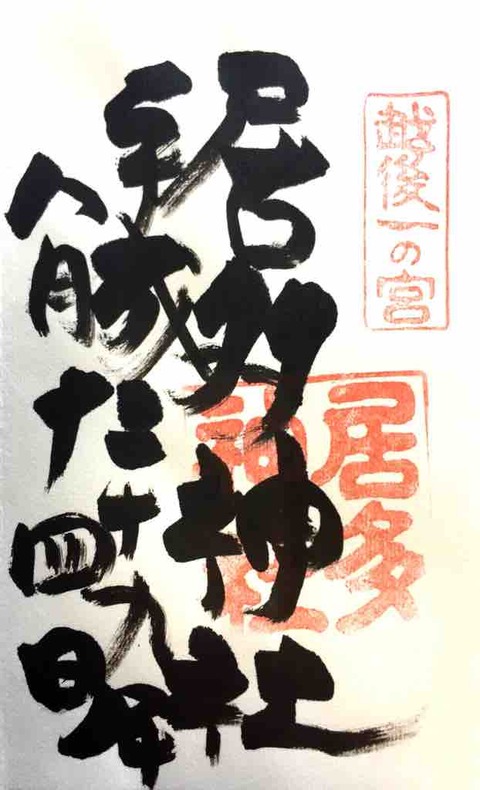 越後一の宮
居多
神社
居多神社
平成二十九年
八月十四日